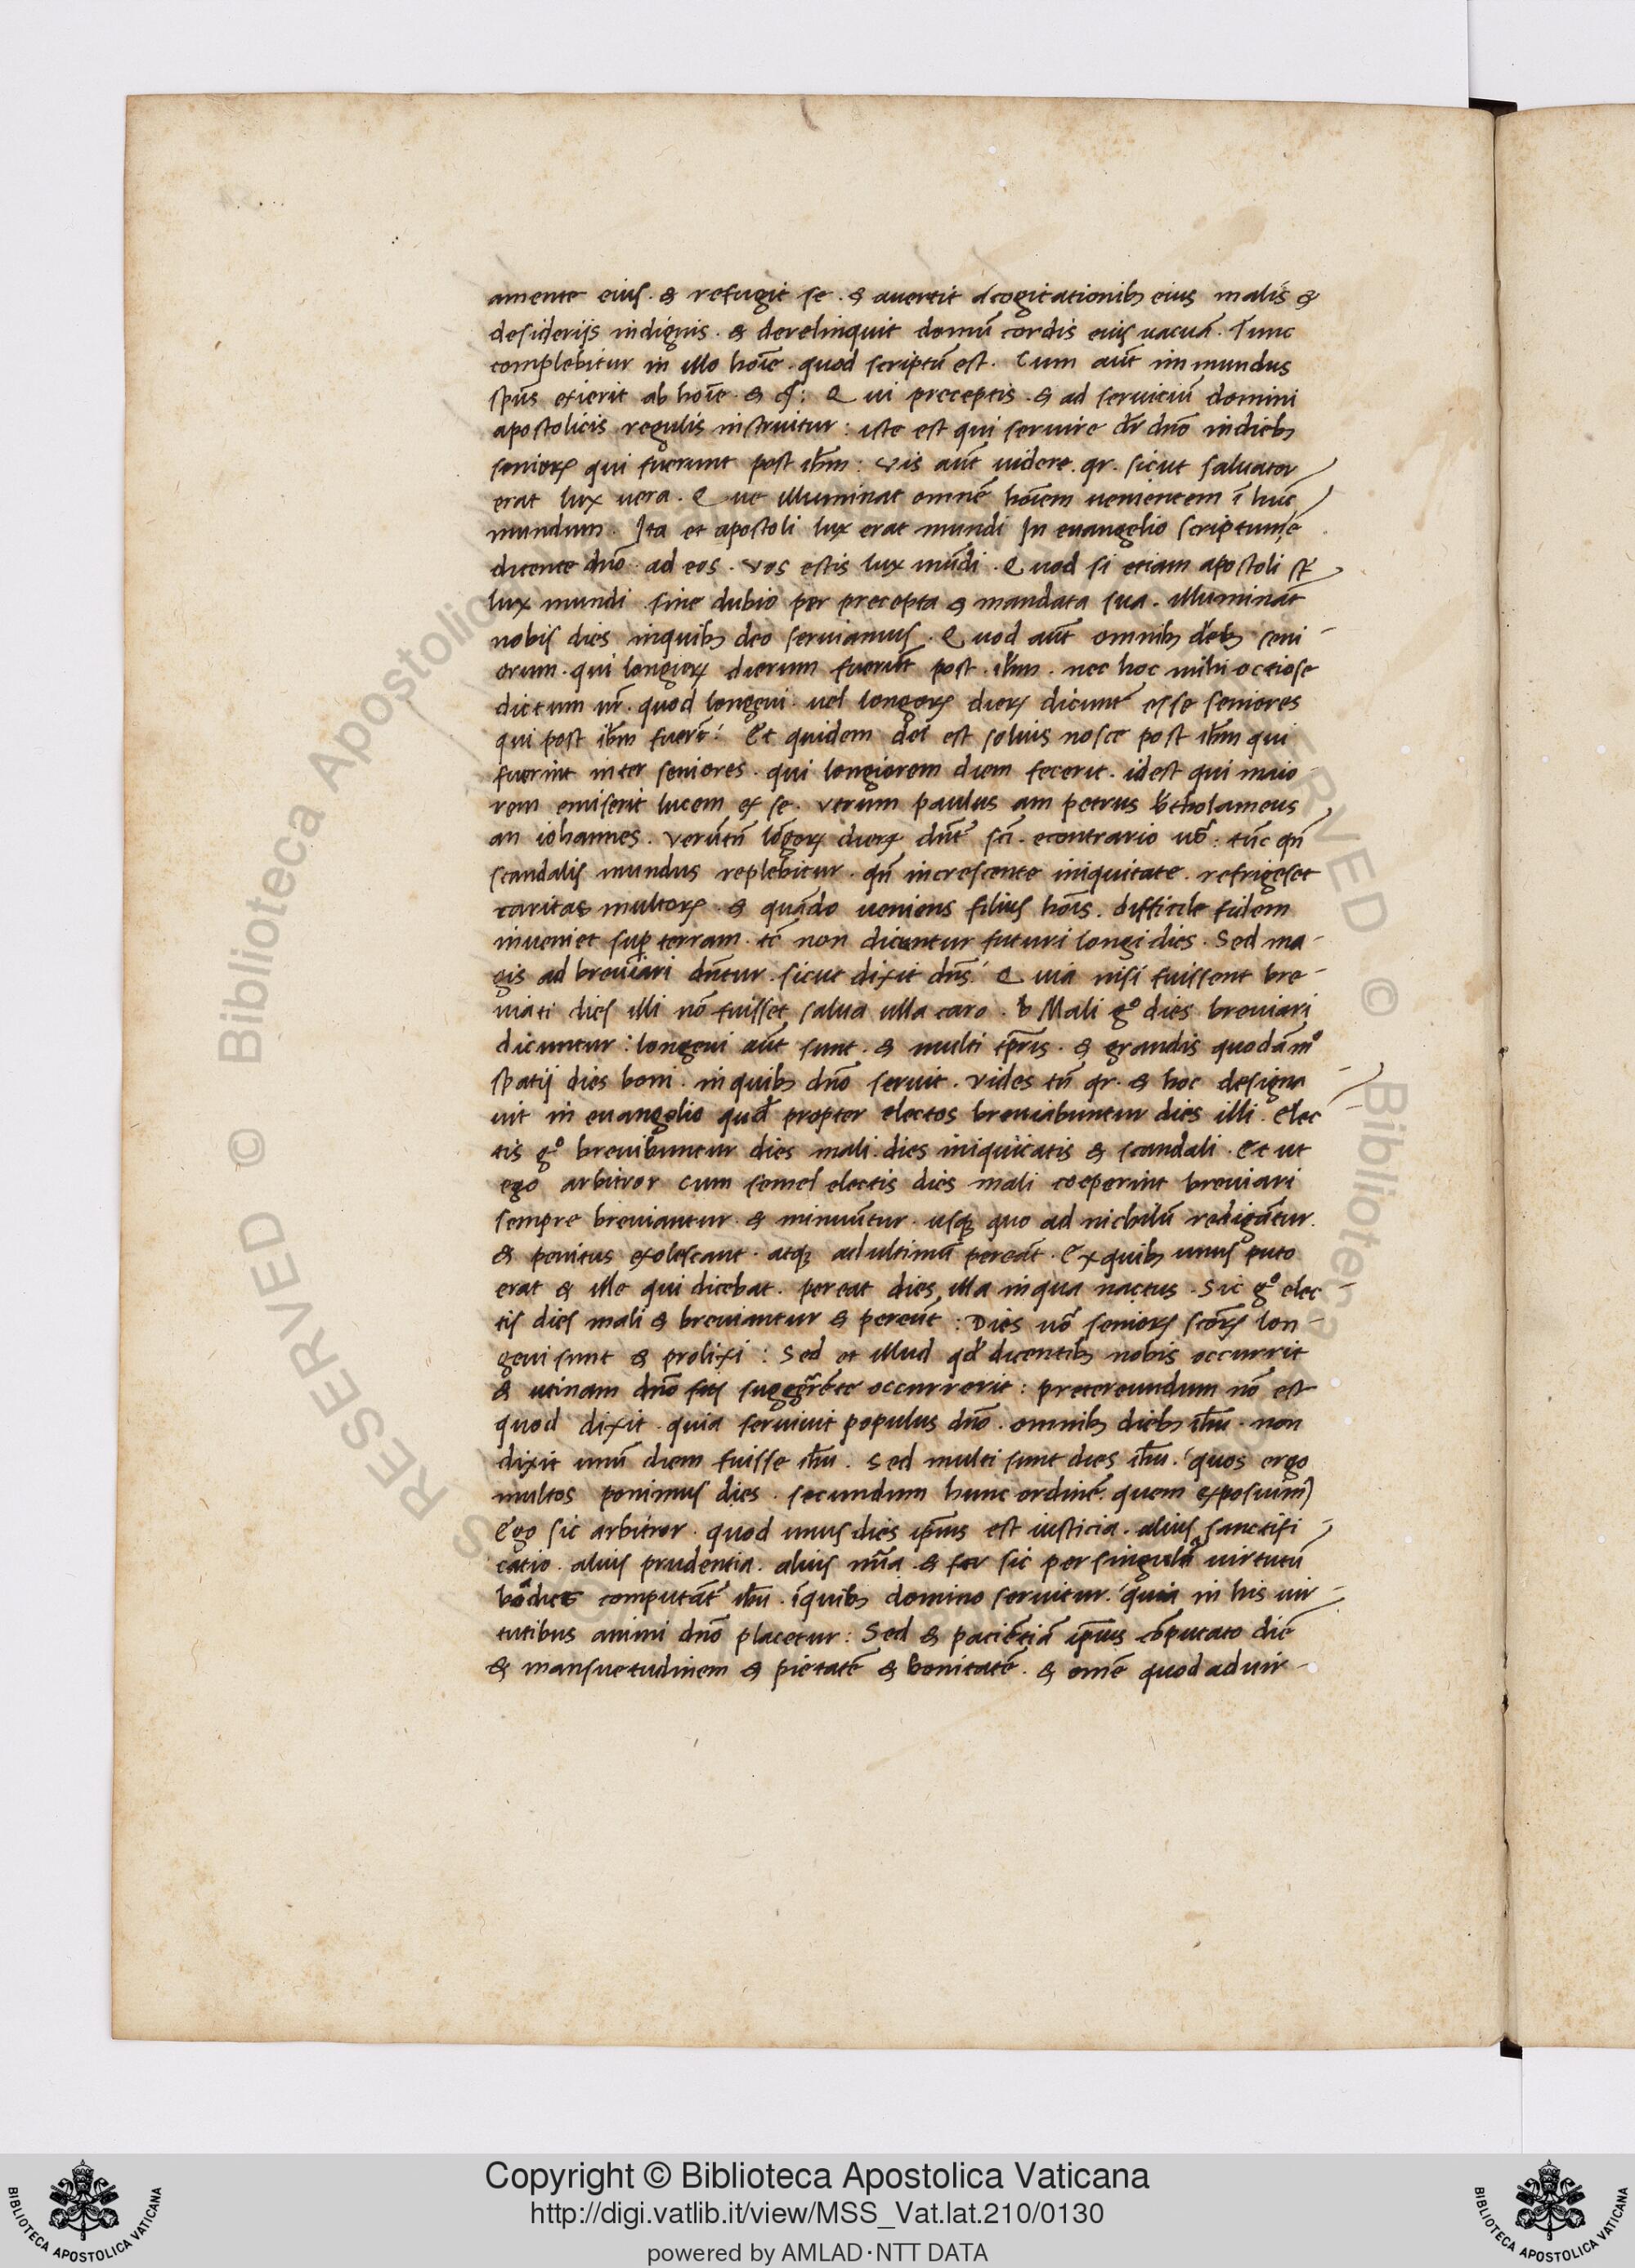 amente eius . & refugit se . & auertit acogitationib eius malis &
desiderijs indignis . & derelinquit domū cordis eius uacuā . Tunc
complebitur in illo hoīe . quod scriptū est . Cum aūt immundus
spūs exierit ab hoīe . & Qui preceptis . & ad seruiciū domini
apostolicis regulis instruitur : iste est qui seruire dr̄ dnō indieb
senioꝝ qui fuerunt post ihm̄ : Vis aūt uidere . qr . sicut saluator
erat lux uera . Que illuminat omnē hoīem uenientem ī hūc
mundum . Ita et apostoli lux erat mundi In euangelio scriptum ē
dicente dnō ad eos . Vos estis lux mūdi . Quod si etiam apostoli st̄
lux mundi sine dubio per precepta & mandata sua . illuminat
nobis dies inquib deo seruiamus . Quod aūt omnib dieb seni
orum . qui longioꝝ dierum fuerūt post . ihm̄ . nec hoc mihi octiose
dictum ur̄ . quod longeui . uel longoꝝ dieꝝ dicunt᷑ esse seniores
qui post ihm̄ fuert̄ : Et quidem dei est solius nosce post ihm̄ qui
fuerint inter seniores . qui longiorem diem fecerit . idest qui maio
rem emiserit lucem ex se . Vtrum paulus am petrus b̄tholameus
an iohannes . Verūtn̄ lōgoꝝ dieꝝ dn̄t᷑ sc̄i . econtrario uō : tūc qn̄
scandalis mundus replebitur . qn̄ increscente iniquitate . refrigeset
caritas multoꝝ . & quādo ueniens filius hoīs . difficile fidem
inueniet sup terram . tc̄ non dicuntur futuri longi dies . Sed ma-
gis ad breuiari dn̄tur . sicut dixit dn̄s : Quia nisi fuissent bre-
uiati dies illi nō fuisset salua ulla caro . Mali g° dies breuiari
dicuntur : longeui aūt sunt . & multi tpr̄is . & grandis quodām°
spatij dies boni . inquib dnō seruit . Vides tn̄ qr . & hoc designa-
uit in euangelio quod̄ propter electos breuiabuntur dies illi . Elec-
tis g° breuibuntur dies mali . dies iniquitatis & scandali . Et ut
ego arbitror cum semel electis dies mali coeperint breuiari
sempre breuiantur . & minuūtur . usqꝫ quo ad nichilū redigātur .
& penitus exolescant . atqꝫ adultimū pereāt . Ex quib unus puto
erat & ille qui dicebat . pereat dies illa inqua nactus . Sic g° elec-
tis dies mali & breuiantur & pereūt : Dies uō senioꝝ scōꝝ lon-
geui sunt & prolixi : Sed et illud qd̄ dicentib nobis occurrit
& utinam dnō suggerēte occurrerit : pretereundum nō est
quod dixit . quia seruiuit populus dnō . omnib dieb ihū . non
dixit unū diem fuisse ihū . Sed multi sunt dies ihū . quos ergo
multos ponimus dies . secundum hunc ordinē . quem exposuim᷒
Ego sic arbitror . quod unus dies ipīus est iusticia . alius sanctifi-
catio . alius prudentia . alius & sic per singula uirtutū
computāt᷑ ihū . īquib domino seruitur . quia in his uir-
tutibus animi dnō placetur : Sed & paciētiā ipīus cōputato diē
& mansuetudinem & pietatē & bonitatē . & omē quod aduir-
Copyright © Biblioteca Apostolica Vaticana
http://digi.vatlib.it/view/MSS_Vat.lat.210/0130
powered by AMLAD·NTT DATA